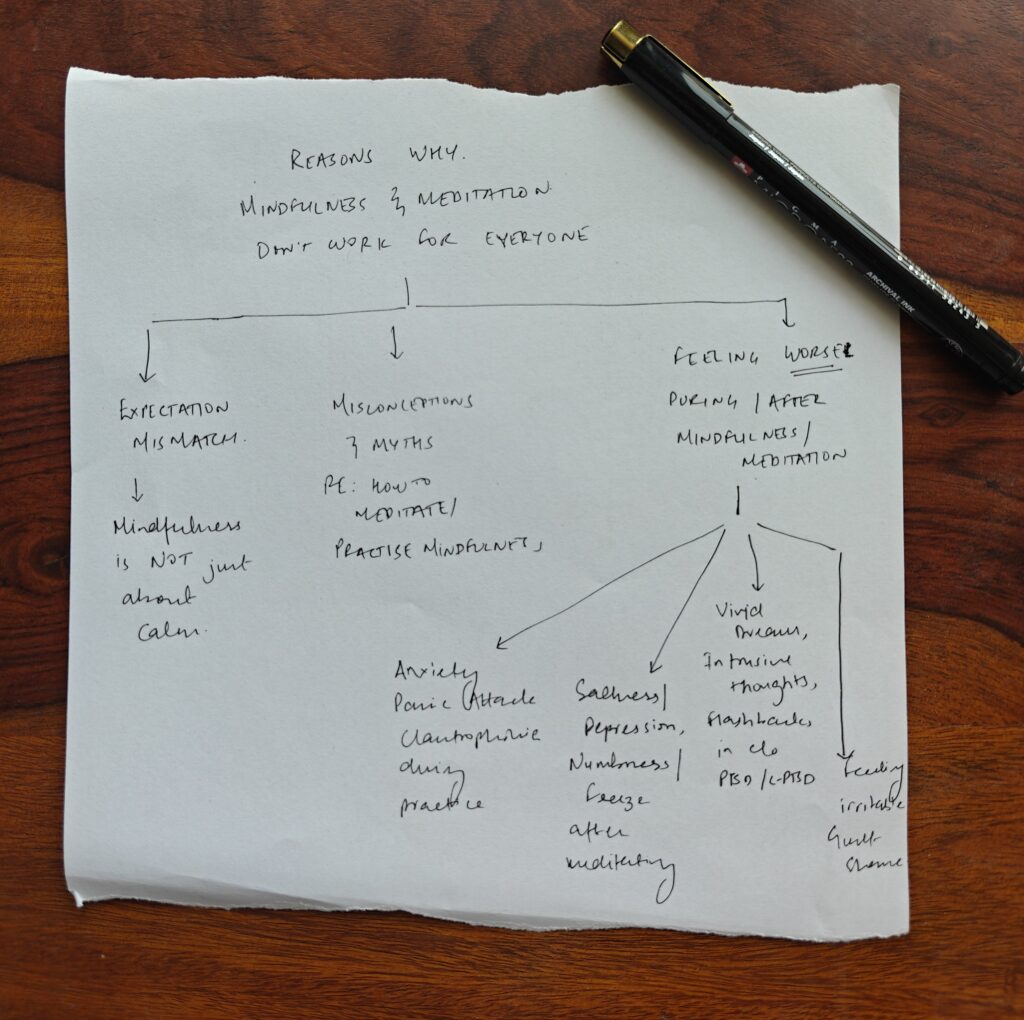 REASONS WHY.
MINDFULNESS & MEDITATION
DON'T WORK FOR EVERYONE
EXPECTATION
MISMATCH.
Mindfulness
is NOT just
about
Calm.
MISCONCEPTIONS
& MYTHS
RE: HOW TO
MEDITATE/
PRACTISE MINDFULNESS
FEELING WORSE
DURING / AFTER
MINDFULNESS/
MEDITATION
Anxiety
Panic Attack
Claustrophobic
during
practice
Sadness/
Depression,
Numbness/
freeze
after
meditating
Vivid
Dreams,
Intrusive
thoughts,
flashbacks
in c/o
PTSD/C-PTSD
Feeling
irritable
Guilt
Shame
PIGMA
ARCHIVAL INK